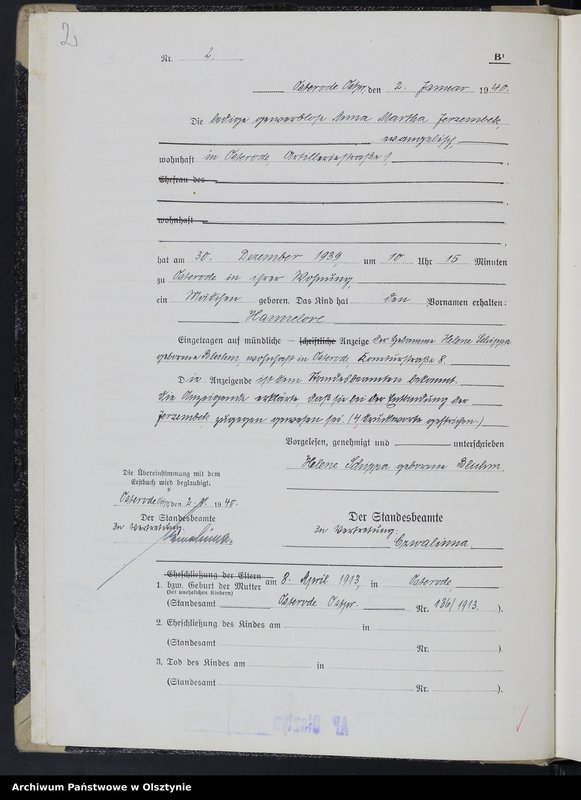 2
Nr. 2.
B¹
Osterode Ostpr. den 2. Januar 1940.
Die ledige gewerblose Anna Martha Jerzembek,
evangelisch,
wohnhaft in Osterode, Artilleriestraße
Ehefrau des
wohnhaft
hat am 30. Dezember 1939 um 10 Uhr 15 Minuten
zu Osterode in ihrer Wohnung,
ein Mädchen geboren. Das Kind hat den Vornamen erhalten:
Hannelore
Eingetragen auf mündliche – schriftliche Anzeige der Hebamme Helene Schippa
geborene Bluhm, wohnhaft in Osterode, Komturstraße 8.
Die Anzeigende ist dem Standesbeamten bekannt.
Die Anzeigende erklärte, daß sie bei der Entbindung der
Jerzembek zugegen gewesen sei. (4 Druckworte gestrichen.)
Vorgelesen, genehmigt und unterschrieben
Helene Schippa geborene Bluhm
Die Übereinstimmung mit dem
Erstbuch wird beglaubigt.
Osterode Ostpr. den 2. 1. 1940.
Der Standesbeamte
In Vertretung
Der Standesbeamte
In Vertretung
Czwalinna
Eheschließung der Eltern
1. bzw. Geburt der Mutter am 8. April 1913, in Osterode,
(bei unehelichen Kindern)
(Standesamt Osterode Ostpr. Nr. 136/1913.)
2. Eheschließung des Kindes am in
(Standesamt Nr. ).
3. Tod des Kindes am in
(Standesamt Nr. ).
AP
Olsztyn
Archiwum Państwowe w Olsztynie